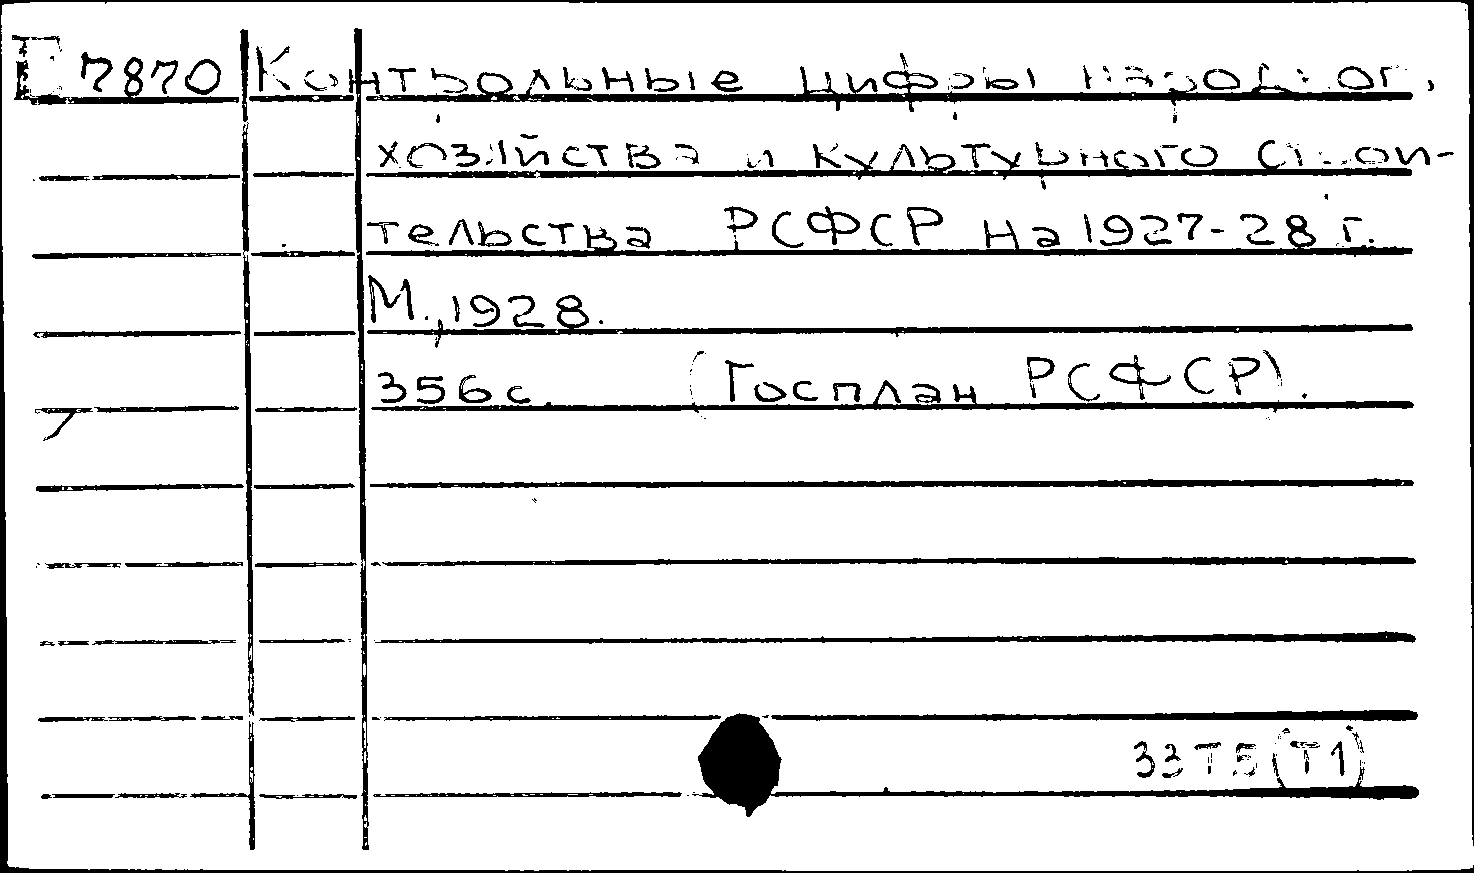 7870 Контрольные цифры народног.
хозяйства и культурного строи-
тельства РСФСР на 1927-28 г.
М., 1928.
356 с. (Госплан РСФСР).
33Т5(Т1)